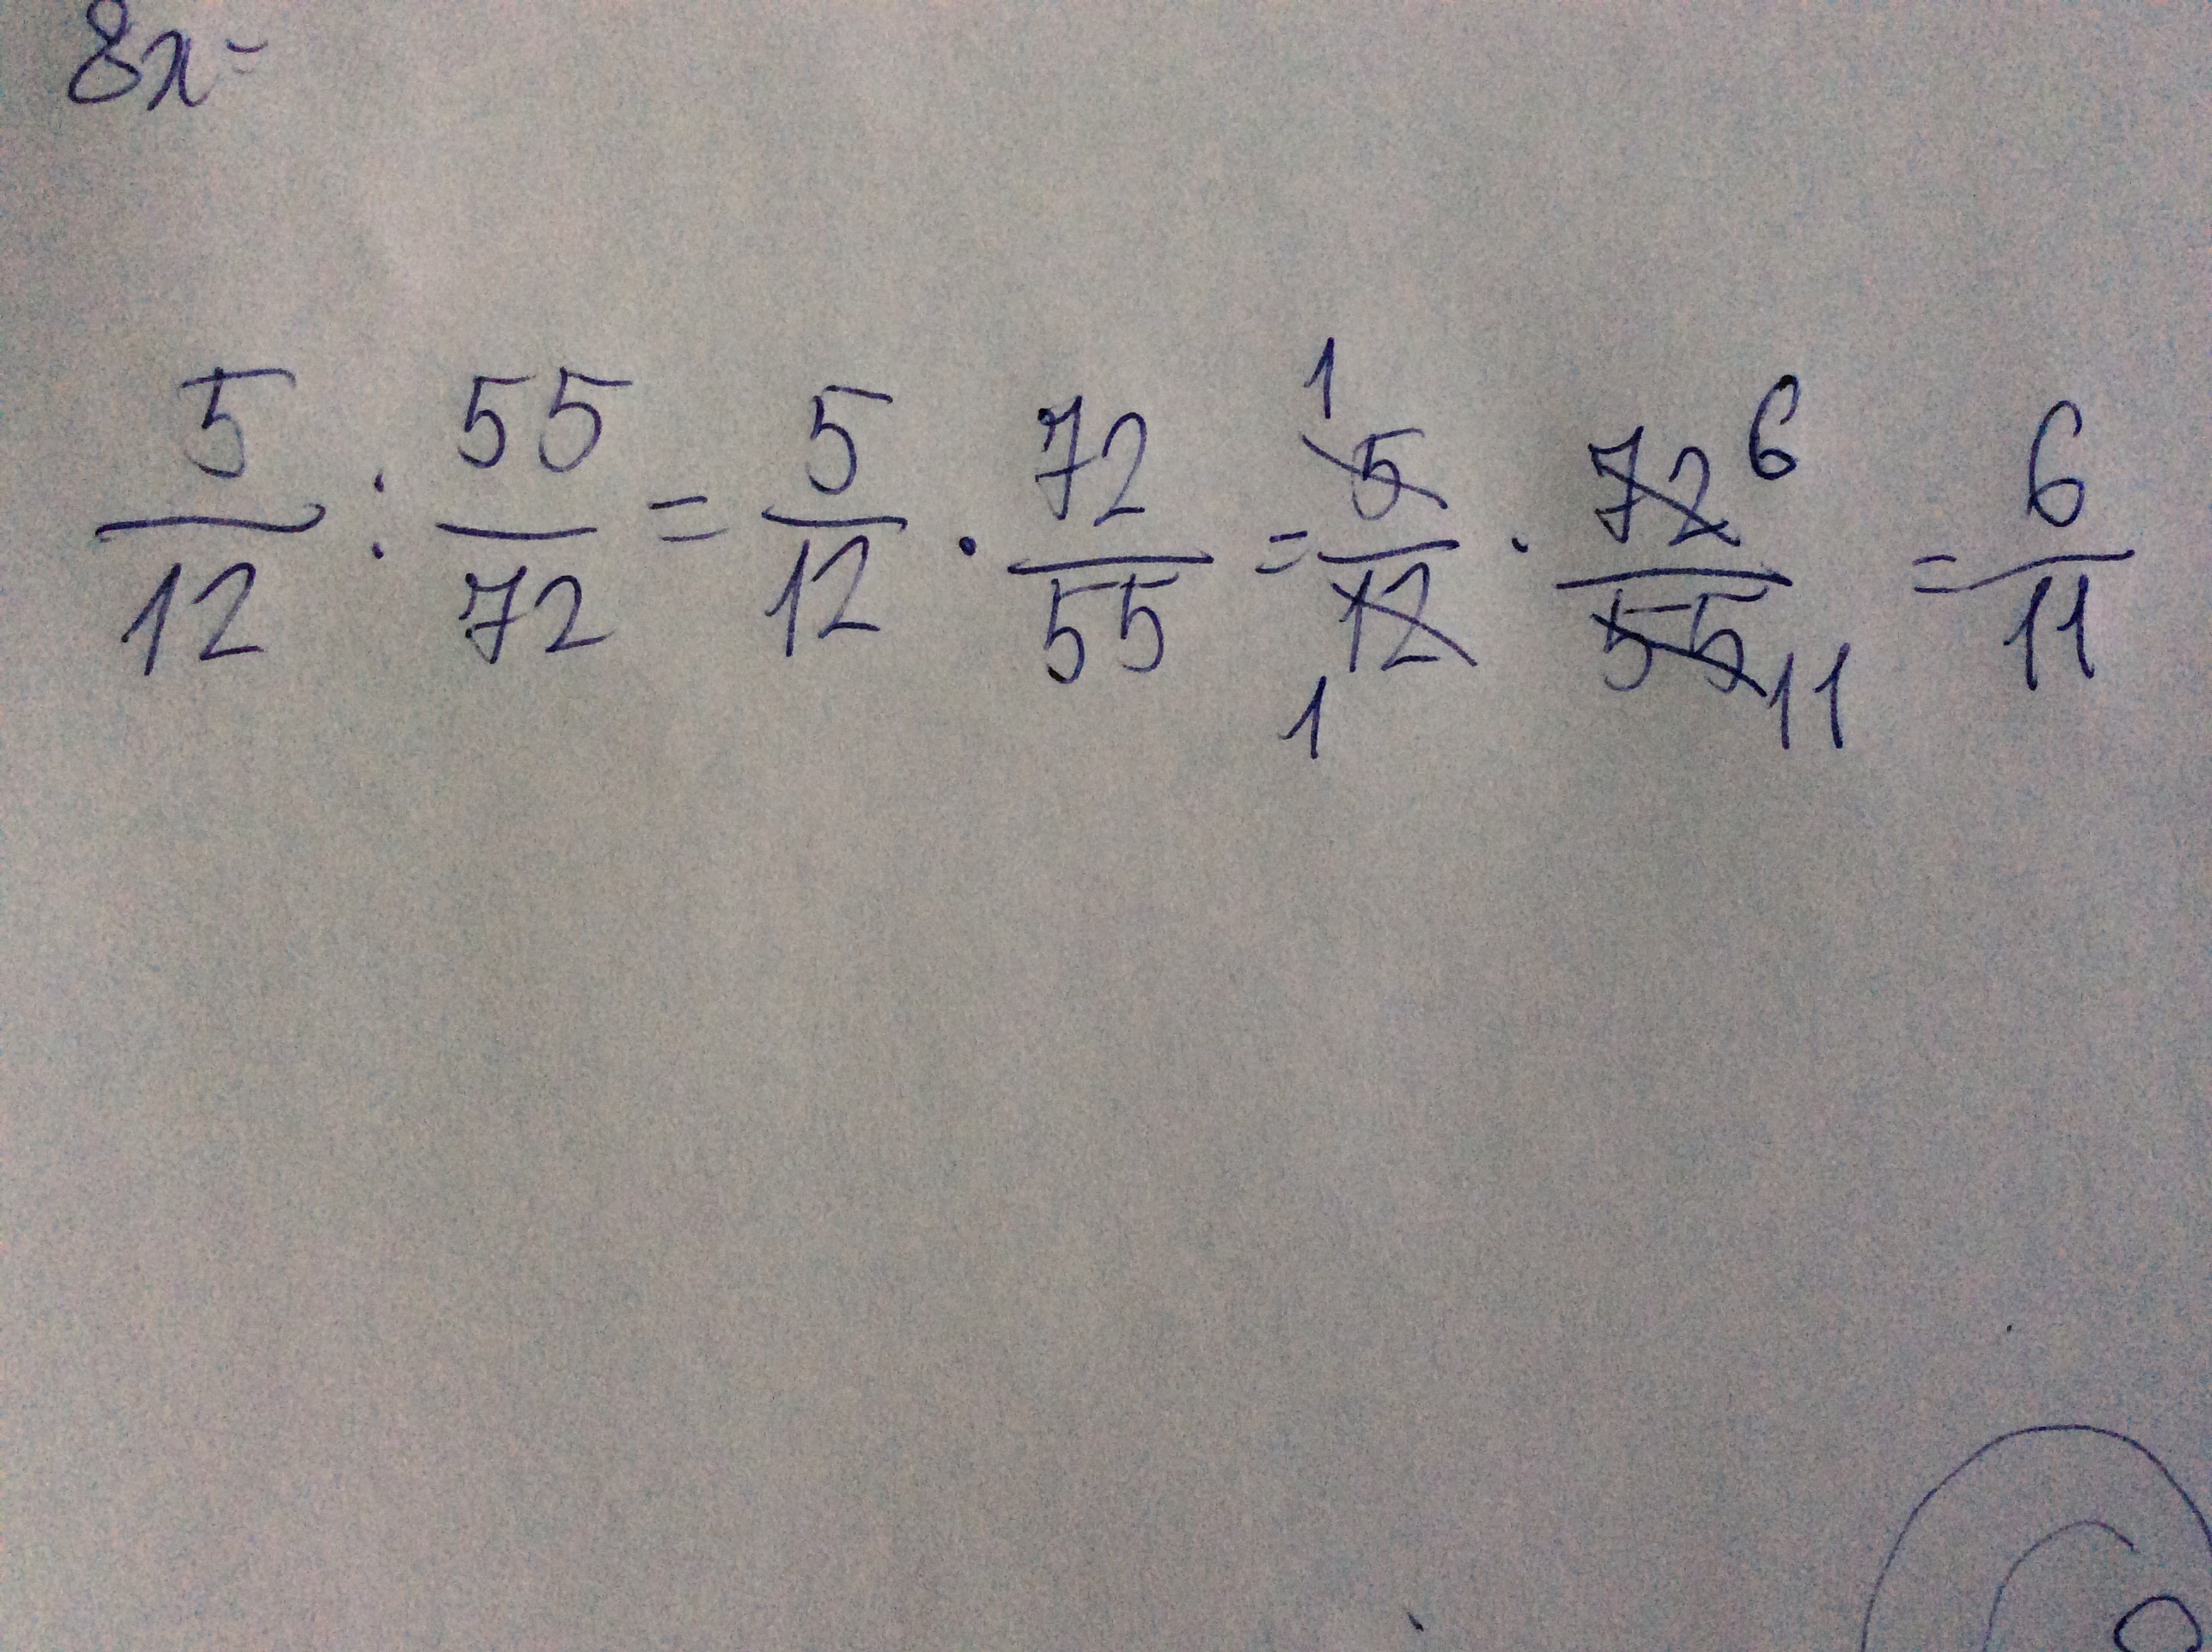 8x=
5/12 : 55/72 = 5/12 · 72/55 = 1 5/12 1 · 72 6/55 11 = 6/11